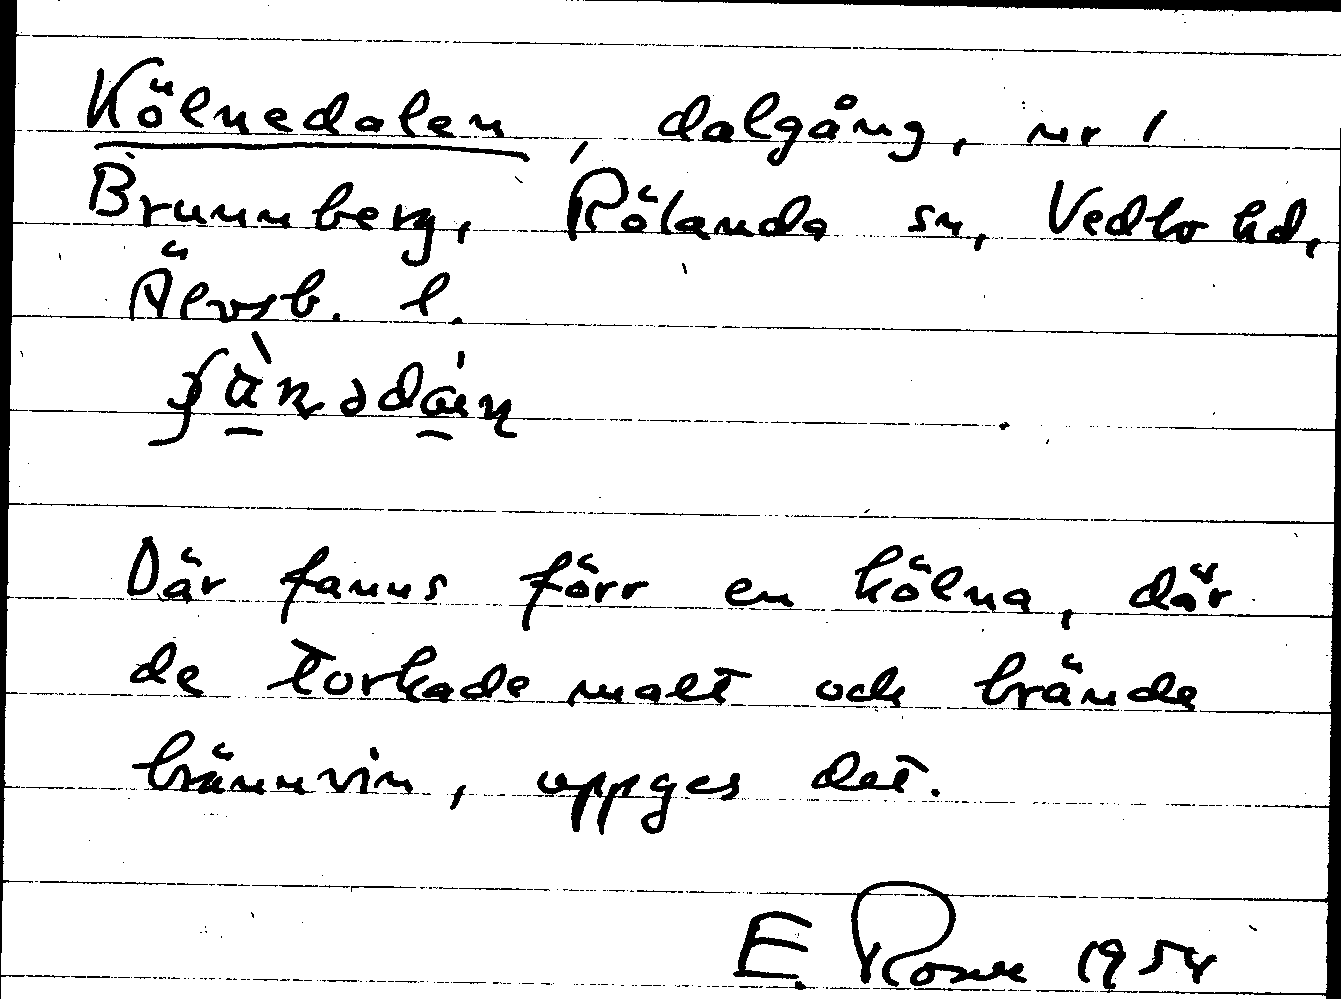 Kölnedalen, dalgång, nr 1
Brunnberg, Rölanda sn, Vedbo hd,
Älvsb. l.
Där fanns förr en kölna, där
de torkade malt och brände
brännvin, uppges det.
E. 1954